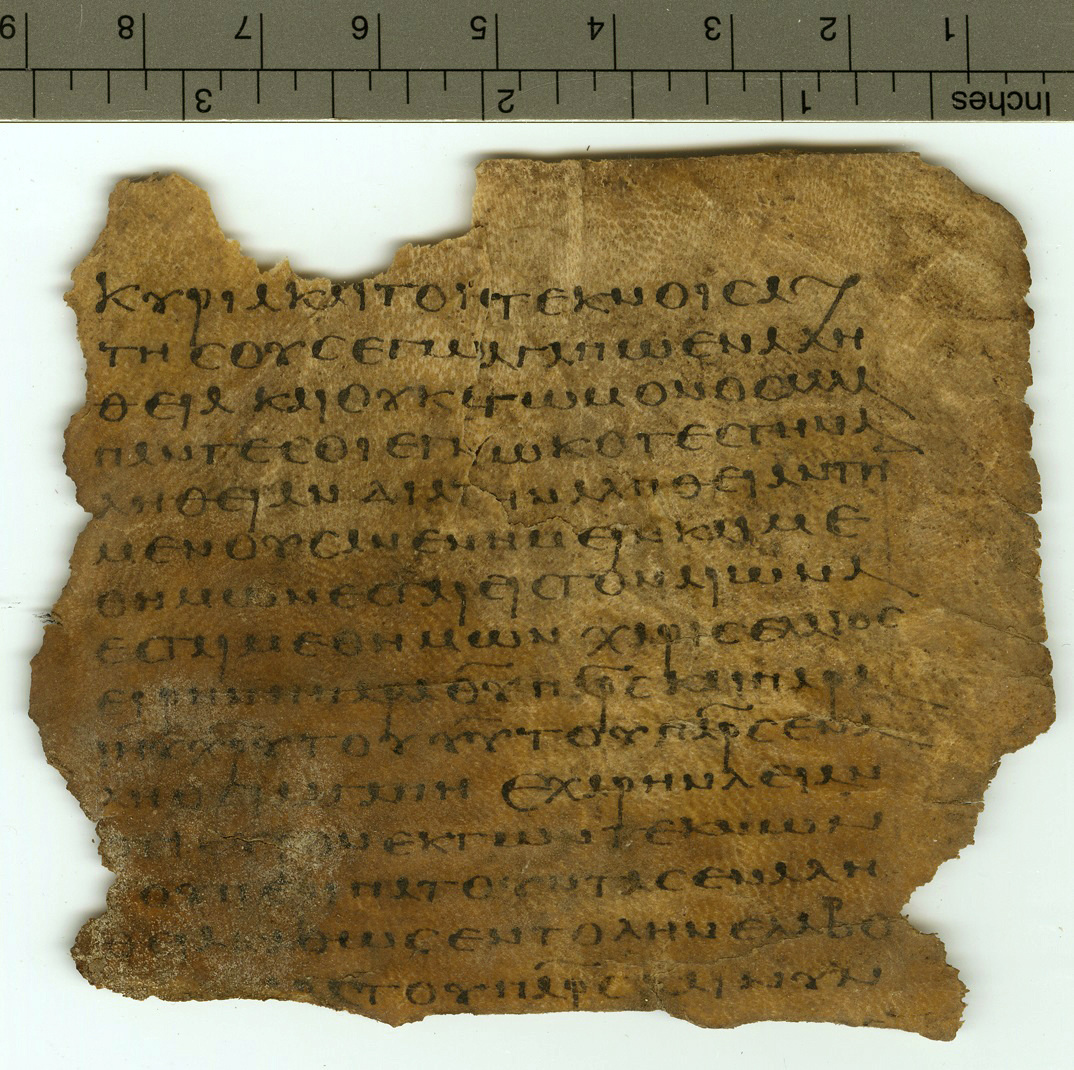 ΚΥΡΙΑ ΚΑΙ ΤΟΙϹ ΤΕΚΝΟΙϹ ΑΥ
ΤΗϹ ΟΥϹ ΕΓΩ ΑΓΑΠΩ ΕΝ ΑΛΗ
ΘΕΙΑ ΚΑΙ ΟΥΚ ΕΓΩ ΜΟΝΟϹ ΑΛΛΑ
ΠΑΝΤΕϹ ΟΙ ΕΓΝΩΚΟΤΕϹ ΤΗΝ Α
ΛΗΘΕΙΑΝ ΔΙΑ ΤΗΝ ΑΛΗΘΕΙΑΝ ΤΗ
ΜΕΝΟΥϹΑΝ ΕΝ ΗΜΕΙΝ ΚΑΙ ΜΕ
ΘΗΜΩΝ ΕϹΤΑΙ ΕΙϹ ΤΟΝ ΑΙΩΝΑ
ΕϹΤΑΙ ΜΕΘ ΗΜΩΝ ΧΑΡΙϹ ΕΛΑΙΟϹ
ΕΙΡΗΝΗ ΠΑΡΑ Θ̅Υ̅ Π̅Α̅Ρ̅Ϲ̅ ΚΑΙ ΠΑΡΑ
Ι̅Η̅Υ̅ Χ̅Ρ̅Υ̅ ΤΟΥ Υ̅Ι̅Υ̅ ΤΟΥ Π̅Α̅Ρ̅Ϲ̅ ΕΝ Α
ΛΗΘΕΙΑ ΑΓΑΠΗ ΕΧΑΡΗΝ ΛΕΙΑΝ
ΕΚ ΤΩΝ ΤΕΚΝΩΝ
ϹΟΥ ΠΕΡΙΠΑΤΟΥΝΤΑϹ ΕΝ ΑΛΗ
ΘΕΙΑ ΚΑΘΩϹ ΕΝΤΟΛΗΝ ΕΛΑΒΟ
ΤΟΥ Π̅Α̅Ρ̅Ϲ̅ ΚΑΙ ΝΥΝ
9 8 7 6 5 4 3 2 1
3 2 1 Inches